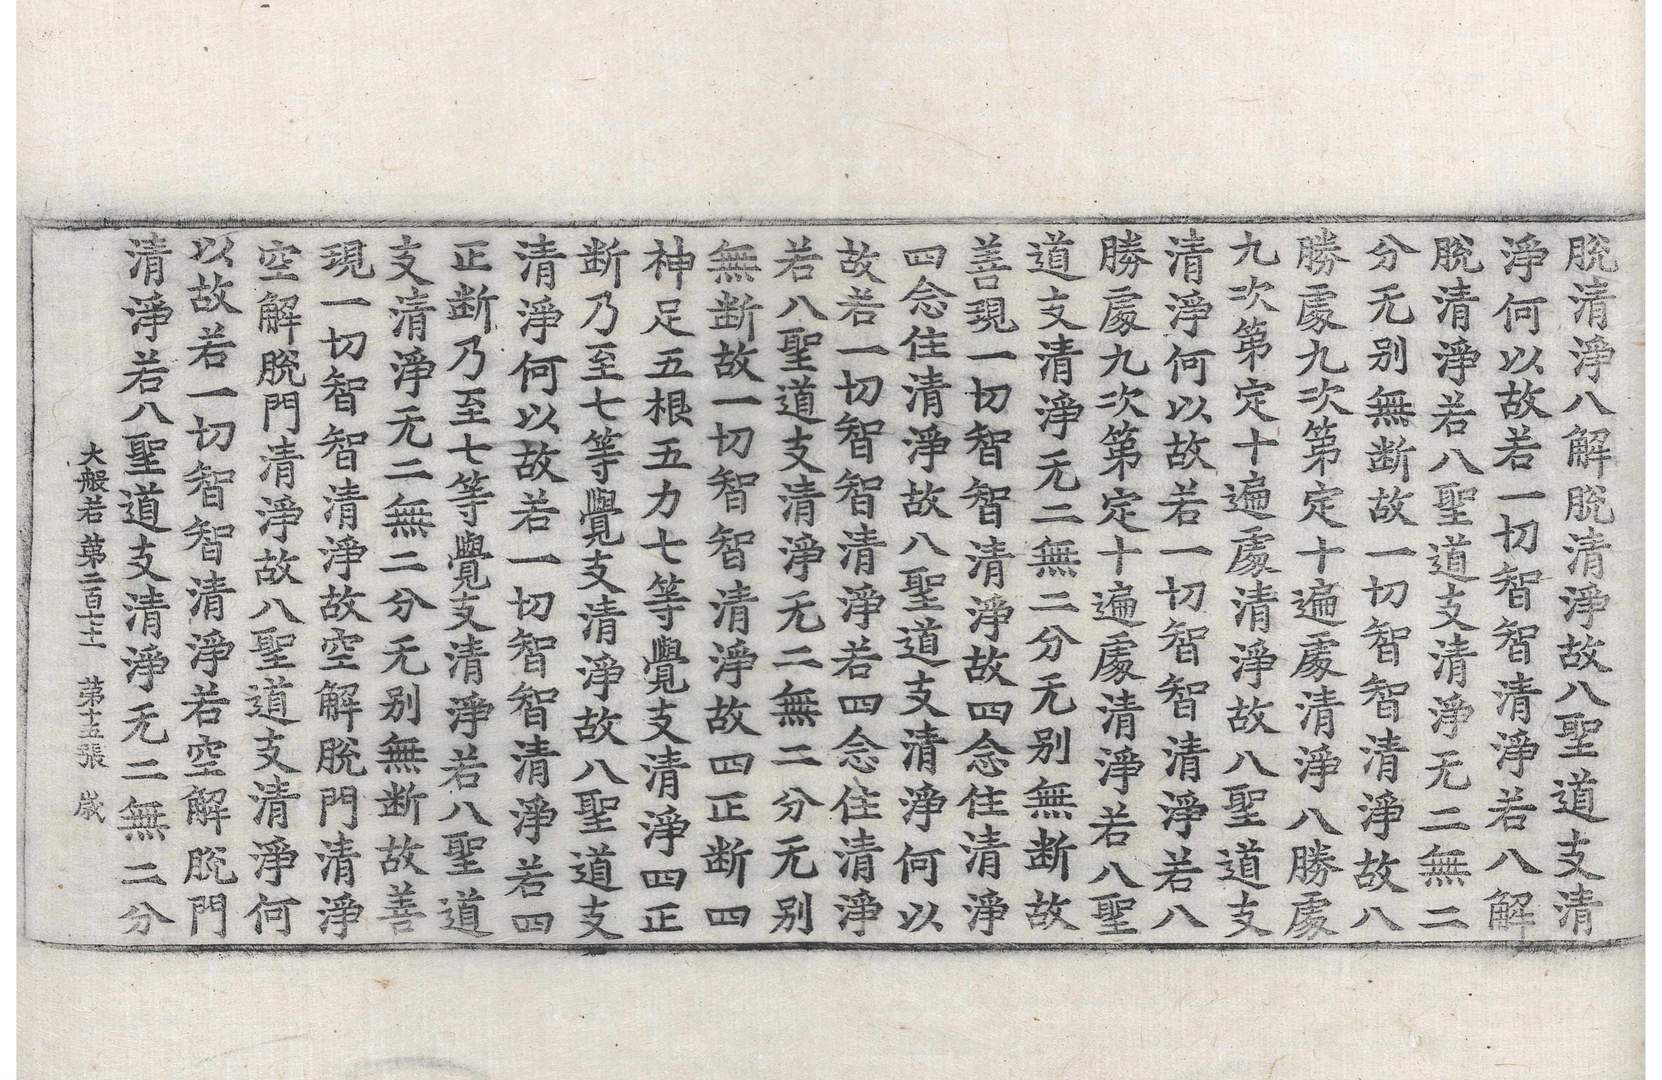 脫清淨八解脫清淨故八聖道支清
淨何以故若一切智智清淨若八解
脫清淨若八聖道支清淨无二無二
分无别無断故一切智智清淨故八
勝處九次第定十遍處清淨八勝處
九次第定十遍處清淨故八聖道支
清淨何以故若一切智智清淨若八
勝處九次第定十遍處清淨若八聖
道支清淨无二無二分无别無断故
善現一切智智清淨故四念住清淨
四念住清淨故八聖道支清淨何以
故若一切智智清淨若四念住清淨
若八聖道支清淨无二無二分无别
無断故一切智智清淨故四正断四
神足五根五力七等覺支清淨四正
断乃至七等覺支清淨故八聖道支
清淨何以故若一切智智清淨若四
正断乃至七等覺支清淨若八聖道
支清淨无二無二分无别無断故善
現一切智智清淨故空解脫門清淨
空解脫門清淨故八聖道支清淨何
以故若一切智智清淨若空解脫門
清淨若八聖道支清淨无二無二分
大般若第二百七十一 第十五張 歲